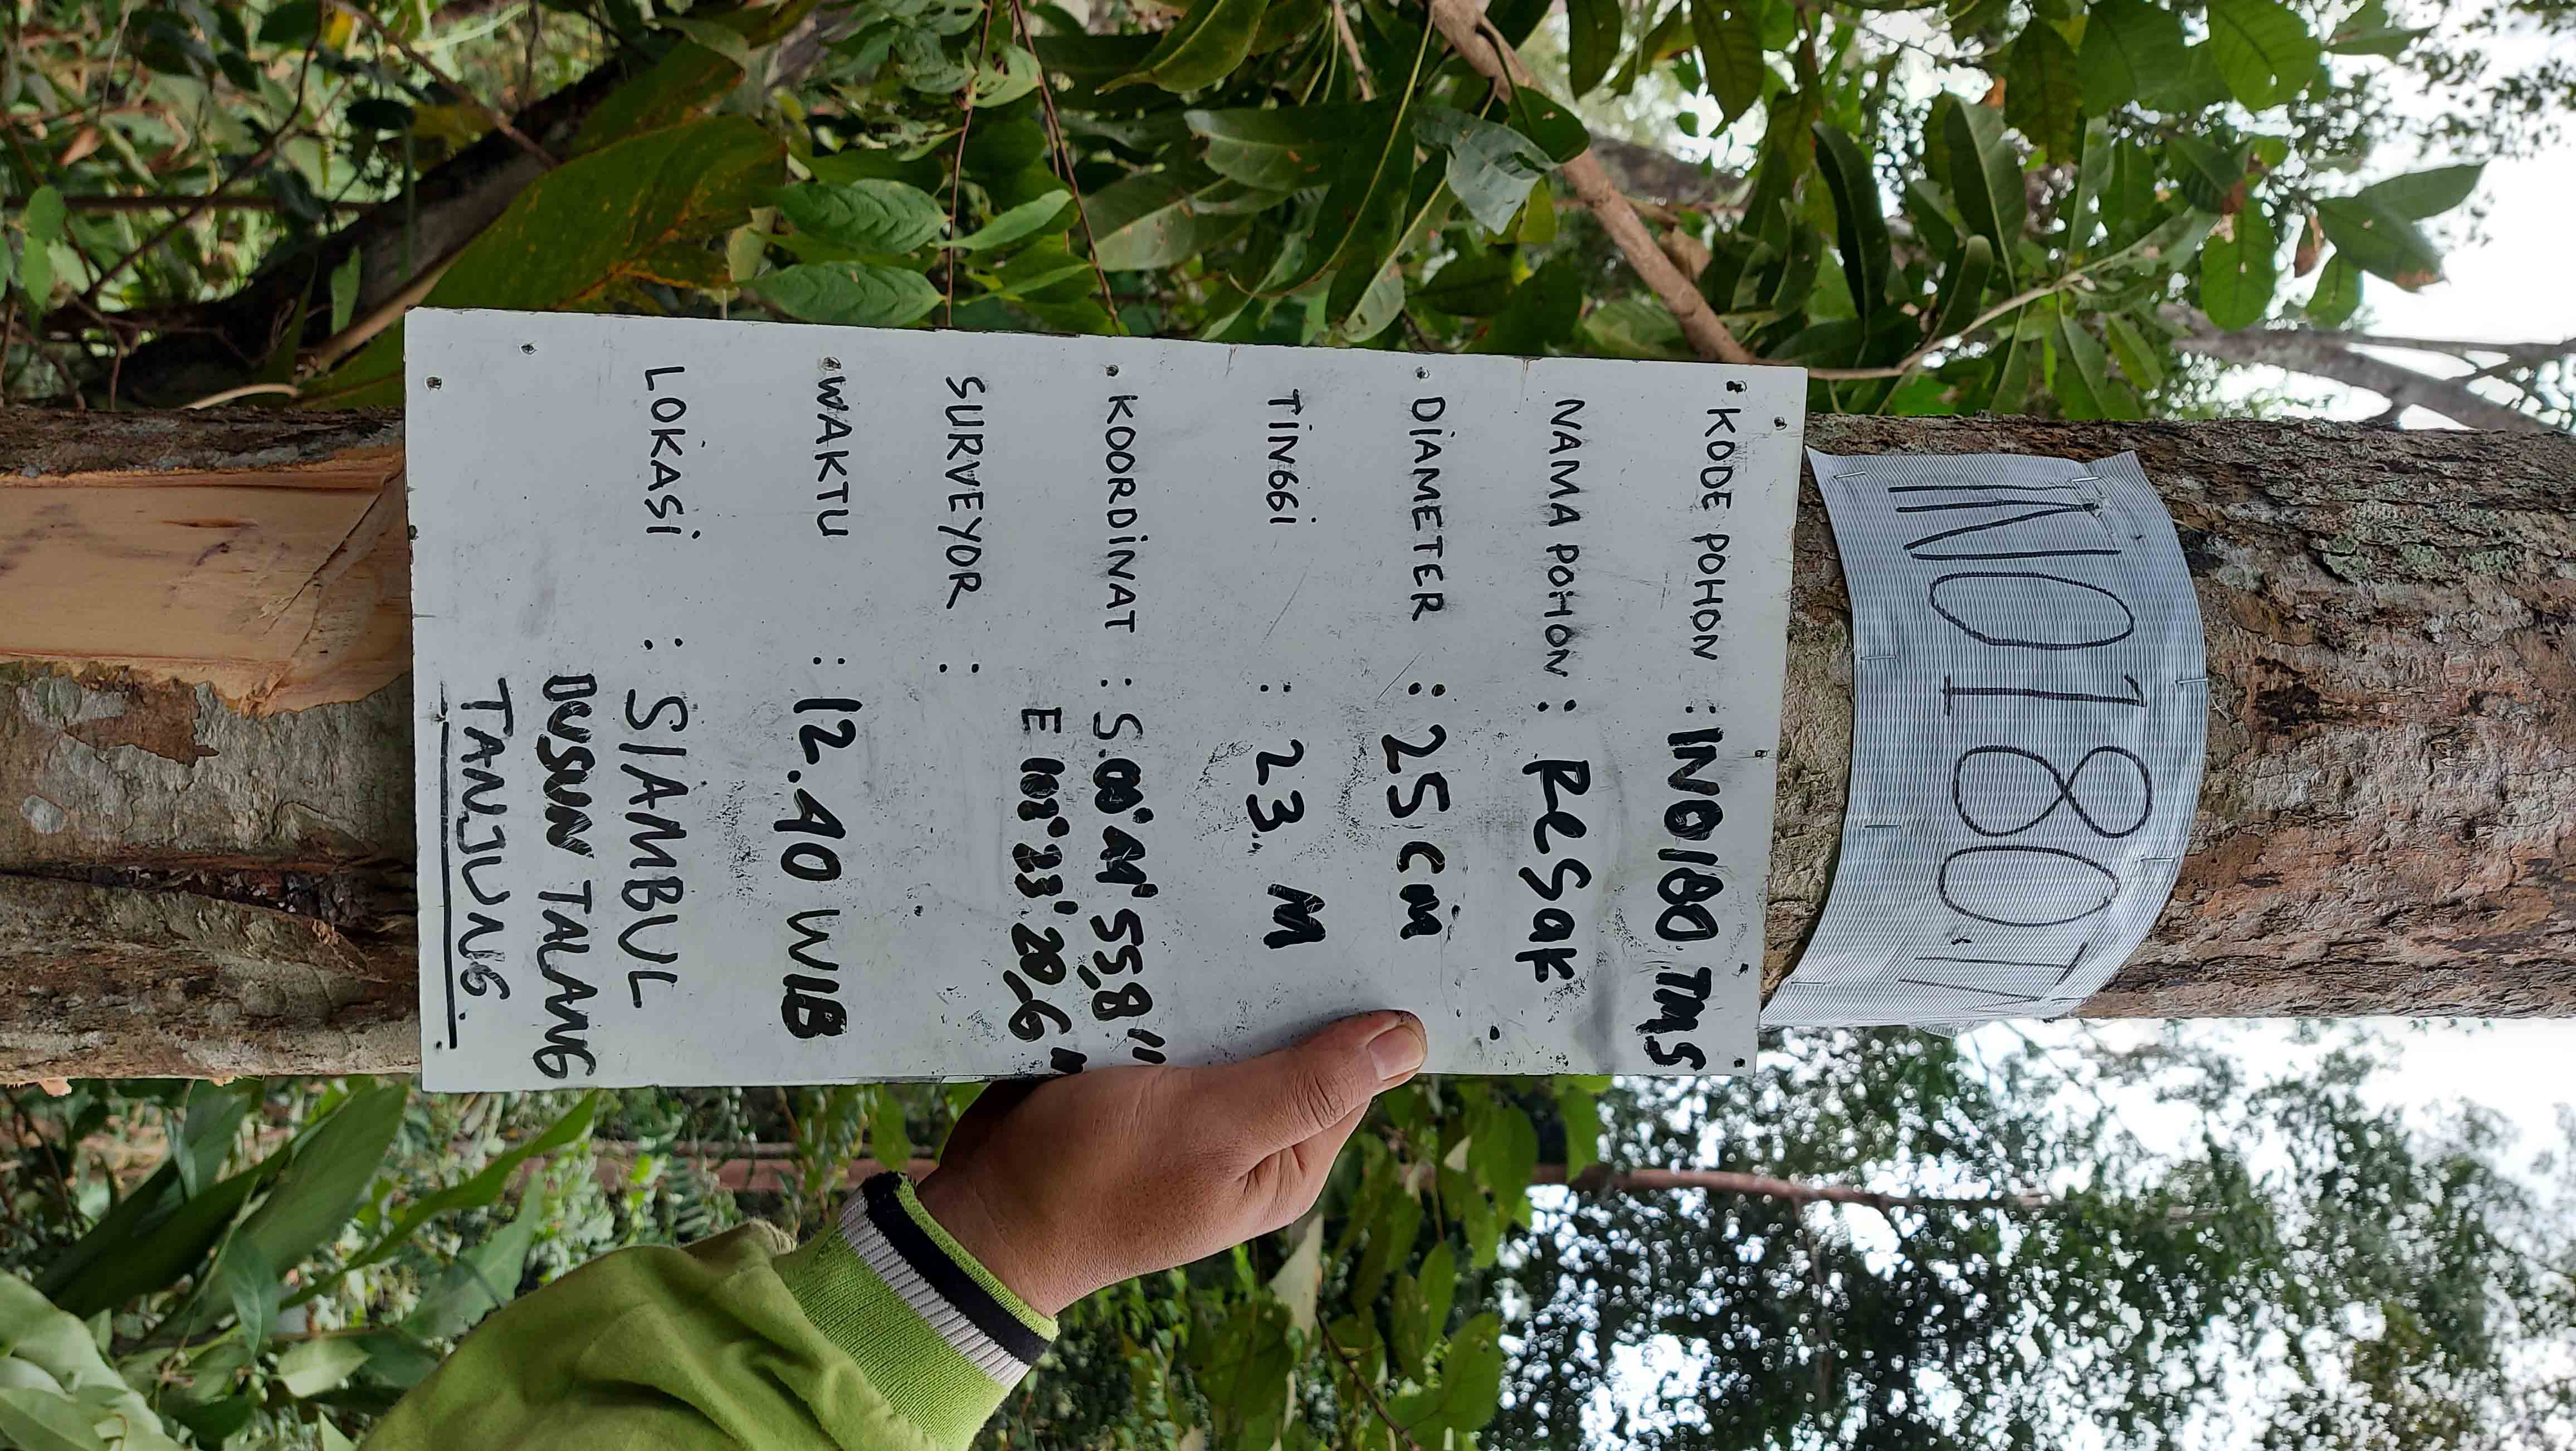 INO180.TM
KODE POHON : INO180 TMS
NAMA POHON : Resak
DIAMETER : 25 CM
TINGGI : 23 M
KOORDINAT : S 55,8"
E 20,6"
SURVEYOR :
WAKTU : 12.40 WIB
LOKASI : SIAMBUL
DUSUN TALANG
TANJUNG.